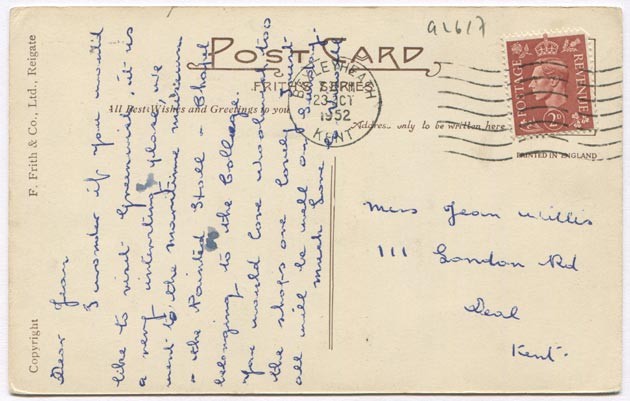 QL617
POST CARD
FRITH'S SERIES
All Best Wishes and Greetings to you
Address only to be written here
BEXLEYHEATH
23 OCT
1952
KENT
POSTAGE
REVENUE
2D
PRINTED IN ENGLAND
F. Frith & Co., Ltd., Reigate
Copyright
Dear Jean
I wonder if you would
like to visit Greenwich, it is
a very interesting place, we
went to the maritime museum
& the Painted Hall & Chapel
belonging to the College
You would love Woolwich too
the shops are lovely, trust
all will be well on Sunday
much love
Miss Jean Willis
111 London Rd
Deal
Kent.